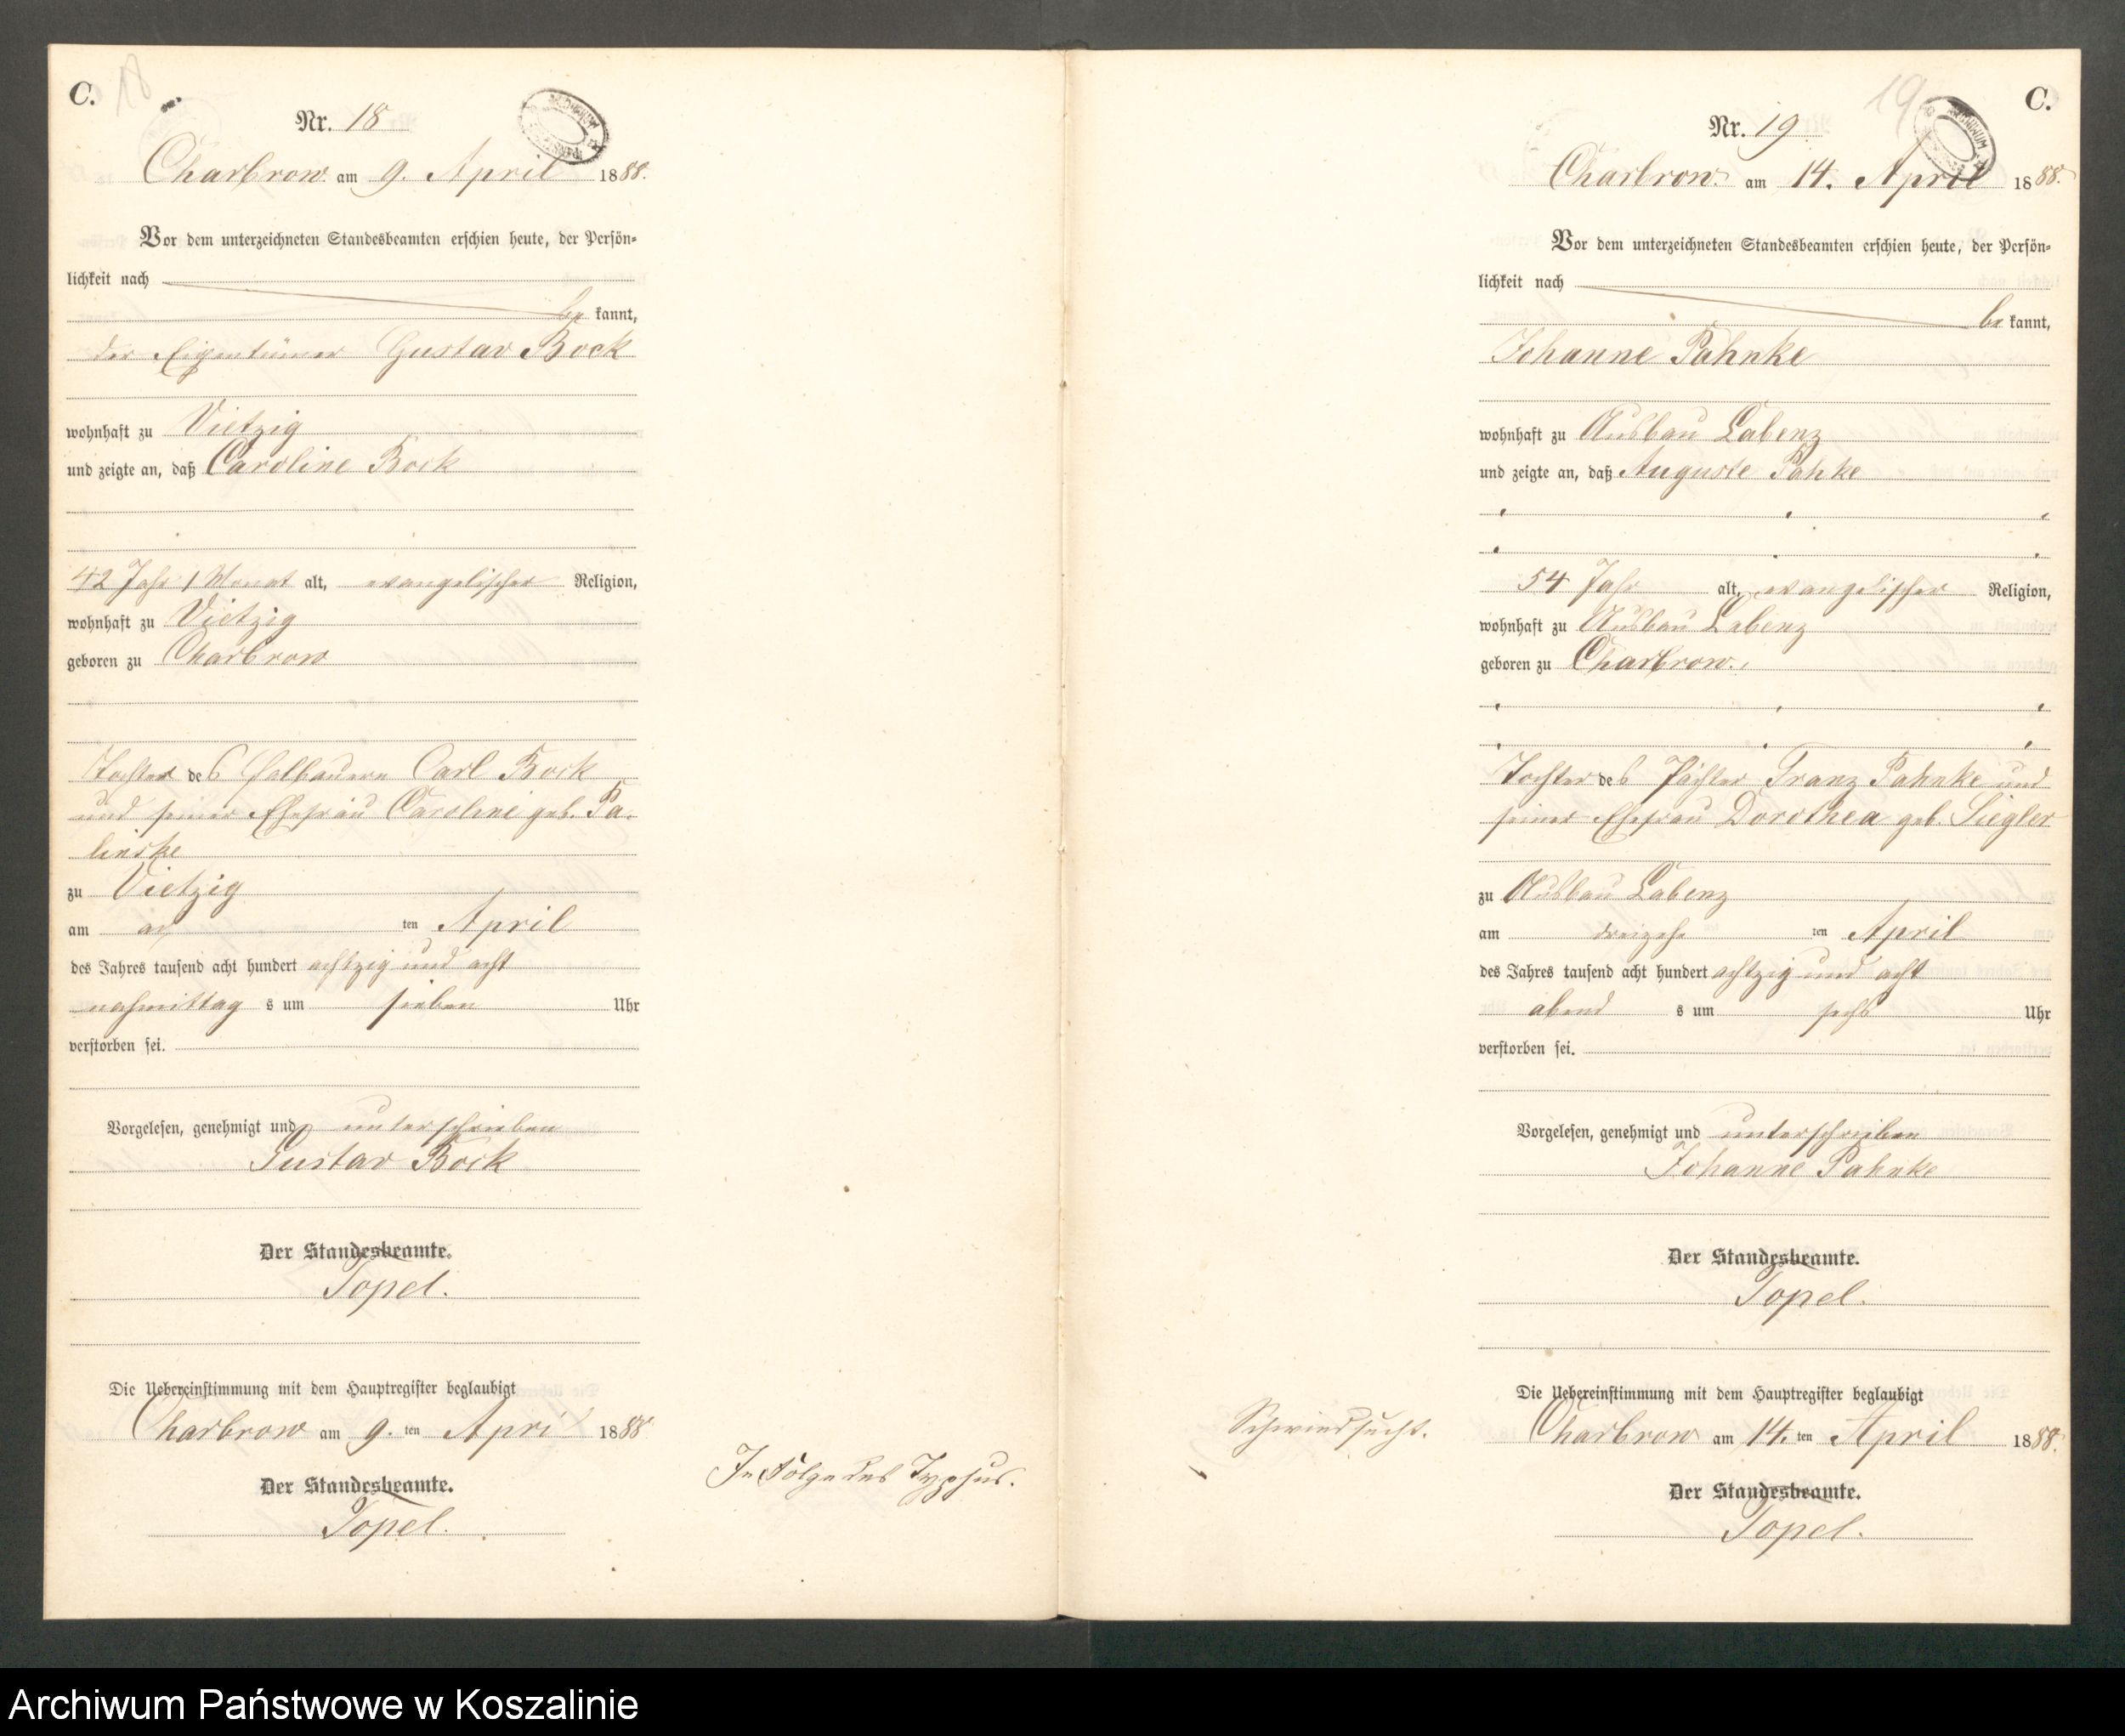 C. 18
Nr. 18
Charbrow am 9. April 1888.
Vor dem unterzeichneten Standesbeamten erschien heute, der Persön-
lichkeit nach
be kannt,
der Eigentümer Gustav Bock
wohnhaft zu Vietzig
und zeigte an, daß Caroline Bock
42 Jahr 1 Monat alt, evangelischer Religion,
wohnhaft zu Vietzig
geboren zu Charbrow
Tochter des Halbauern Carl Bock
und seiner Ehefrau Caroline geb. Pa-
linske
zu Vietzig
am ten April
des Jahres tausend acht hundert achtzig und acht
nachmittag s um sieben Uhr
verstorben sei.
Vorgelesen, genehmigt und unterschrieben
Gustav Bock
Der Standesbeamte.
Topel.
Die Uebereinstimmung mit dem Hauptregister beglaubigt
Charbrow am 9. ten April 1888
Der Standesbeamte.
Topel.
In Folge des Typhus.
19 C.
Nr. 19
Charbrow. am 14. April 1888.
Vor dem unterzeichneten Standesbeamten erschien heute, der Persön-
lichkeit nach
be kannt,
Johanne Pahnke
wohnhaft zu Ausbau Labenz
und zeigte an, daß Auguste Pahke
54 Jahr alt, evangelischer Religion,
wohnhaft zu Ausbau Labenz
geboren zu Charbrow.
Tochter des Pächter Franz Pahnke und
seiner Ehefrau Dorothea geb. Siegler
zu Ausbau Labenz
am dreizehn ten April
des Jahres tausend acht hundert achtzig und acht
abend s um sechs Uhr
verstorben sei.
Vorgelesen, genehmigt und unterschrieben
Johanne Pahnke
Der Standesbeamte.
Topel.
Die Uebereinstimmung mit dem Hauptregister beglaubigt
Charbrow am 14. ten April 1888.
Der Standesbeamte.
Topel.
Schwindsucht.
Archiwum Państwowe w Koszalinie